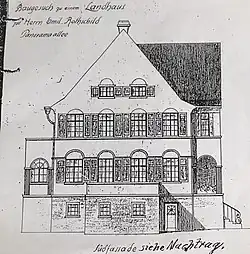 Baugesuch zu einem Landhaus
für Herrn Emil Rothschild
Panoramaallee
Südfassade siehe Nachtrag.